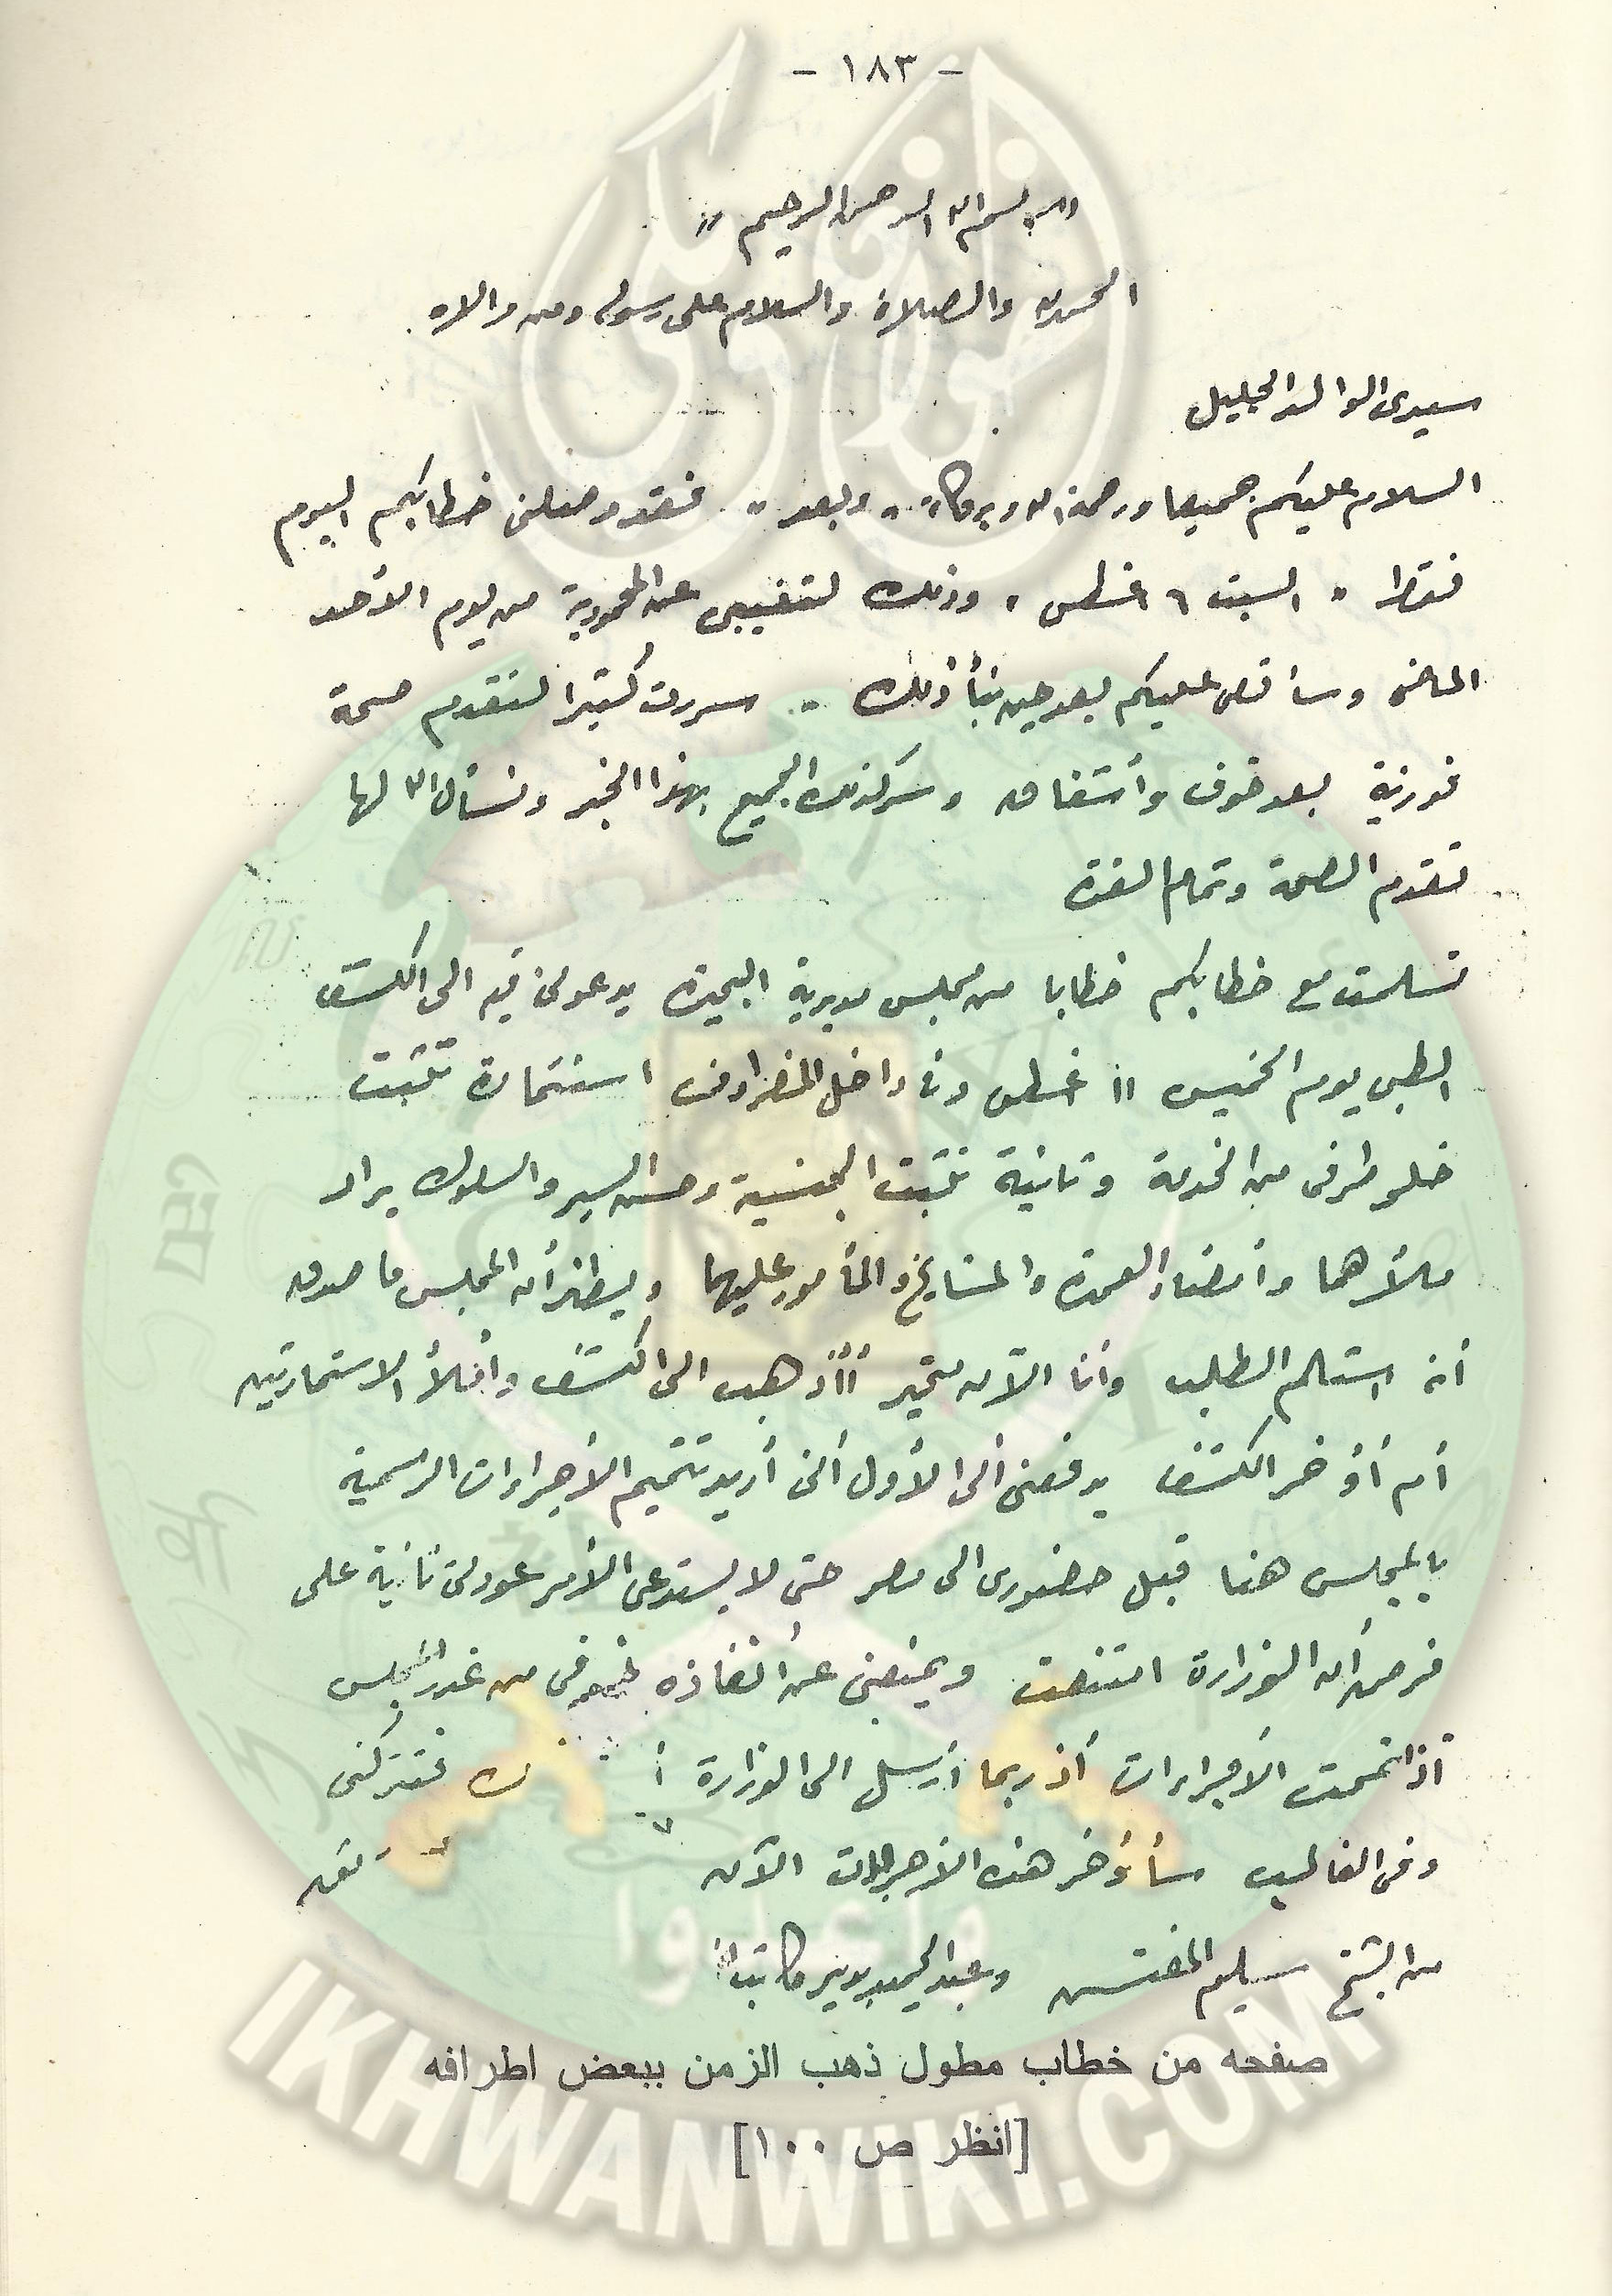 - ١٨٣ -
" بسم الله الرحمن الرحيم "
الحمد لله والصلاة والسلام على رسوله ومن والاه .
سيدى الوالد الجليل
السلام عليكم جميعا ورحمة الله وبركاته . وبعد .. فقد وصلنى خطابكم اليوم
فقط " السبت ٦ اغسطس " وذلك لتغيبى عن المحمودية من يوم الأحد
الماضى وسأقص عليكم بعد حين نبأ ذلك .. سررت كثيرا لتقدم صحة
فوزية بعد خوف وأشفاق وسر كذلك الجميع بهذا الخبر ونسأل الله لها
تقدم الصحة وتمام القوة
تسلمت مع خطابكم خطابا من مجلس مديرية البحيرة يدعونى فيه الى الكشف
الطبى يوم الخميس ١١ اغسطس وفى داخل المظروف استمارة تثبت
خلو طرفى من الخدمة وثانية تثبت الجنسية وحسن السير والسلوك يراد
ملأهما وأمضاء العمدة والمشايخ والمأمور عليهما ويظهر أن المجلس ما صدق
أنه استلم الطلب وأنا الآن متحير أأذهب الى الكشف وأملأ الاستمارتين
أم أؤخر الكشف يدفعنى الى الأول أنى أريد تتميم الأجراءات الرسمية
بالمجلس هنا قبل حضورى الى مصر حتى لا يستدعى الأمر عودتى ثانية على
فرض أن الوزارة امتنعت ويمنعنى عن أنفاذه خوفى من غدر المجلس
أذا تممت الأجراءات أذ ربما أرسل الى الوزارة فتتركنى
وفى الغالب سأؤخر هذه الأجراءات الآن
من الشيخ سليم المفتش وعبد الحميد
صفحه من خطاب مطول ذهب الزمن ببعض اطرافه
[انظر ص ١٠٠]
واعدوا
IKHWANWIKI.COM